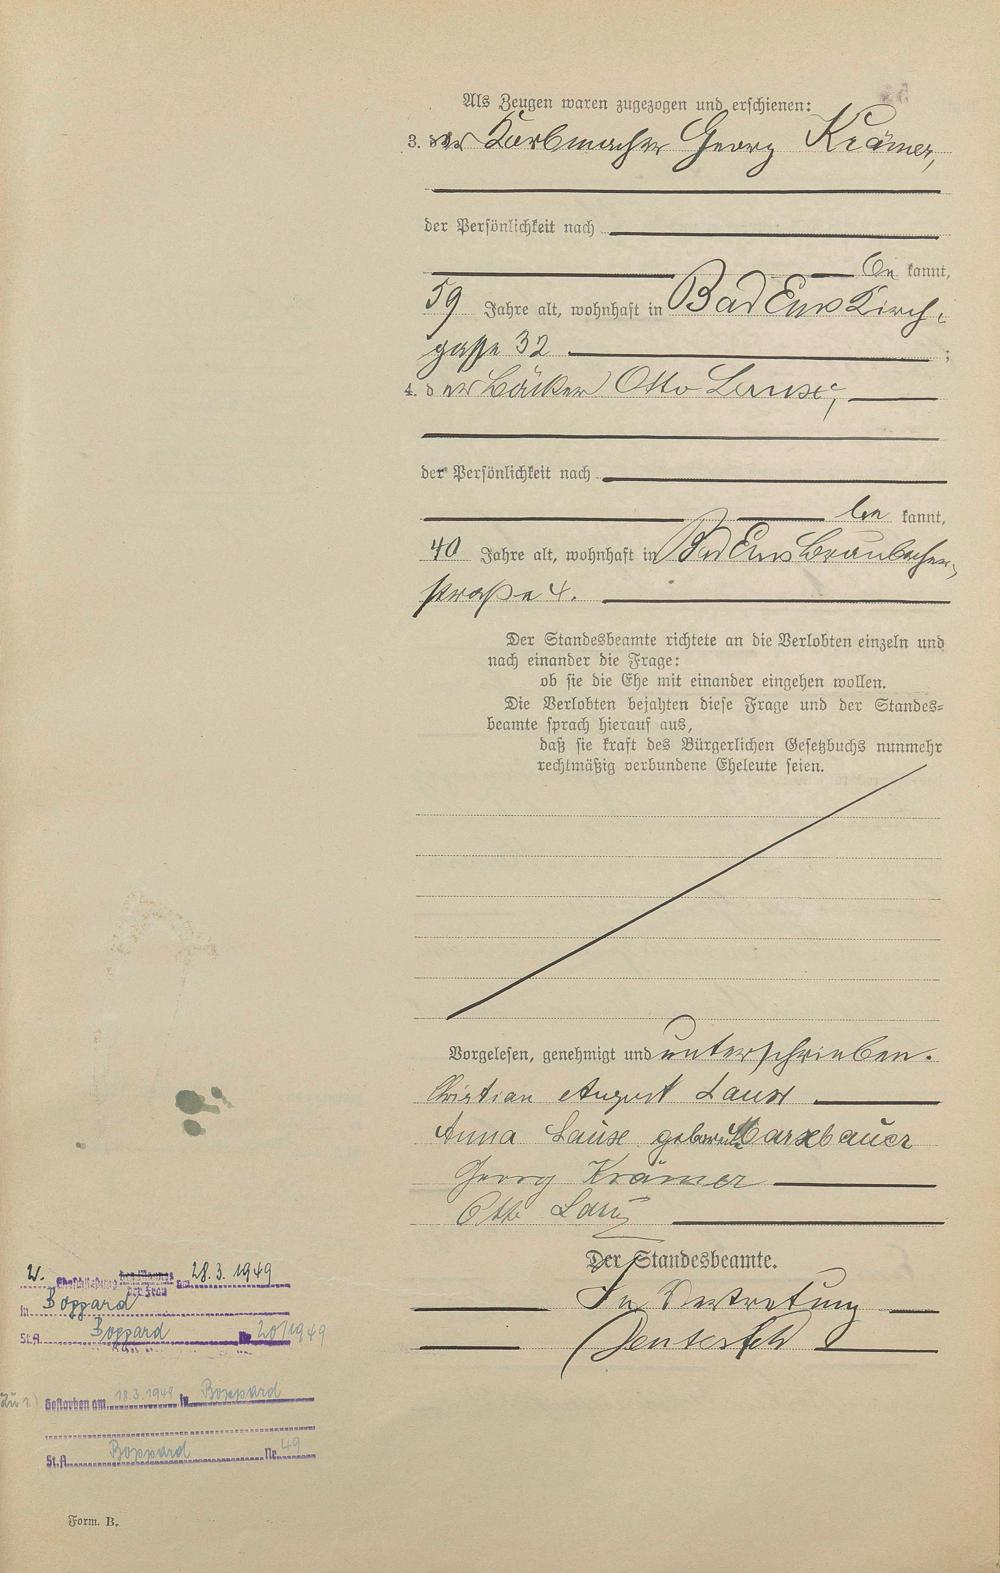 Als Zeugen waren zugezogen und erschienen:
3. der Korbmacher Georg Krämer,
der Persönlichkeit nach
be kannt,
59 Jahre alt, wohnhaft in Bad Ems Kirch-
gasse 32 ;
4. der Bäcker Otto Lause,
der Persönlichkeit nach
be kannt,
40 Jahre alt, wohnhaft in Bad Ems Braubacher-
straße 4.
Der Standesbeamte richtete an die Verlobten einzeln und
nach einander die Frage:
ob sie die Ehe mit einander eingehen wollen.
Die Verlobten bejahten diese Frage und der Standes-
beamte sprach hierauf aus,
daß sie kraft des Bürgerlichen Gesetzbuchs nunmehr
rechtmäßig verbundene Eheleute seien.
Vorgelesen, genehmigt und unterschrieben.
Christian August Lause
Anna Lause geborene
Georg Krämer
Otto Lause
Der Standesbeamte.
In Vertretung
2. Eheschließung des Mannes am 28.3.1949
der Frau
in Boppard
St.A. Boppard Nr. 20/1949
Zu 1.) Gestorben am 18.3.1948 in Boppard
St.A. Boppard Nr. 49
Form. B.